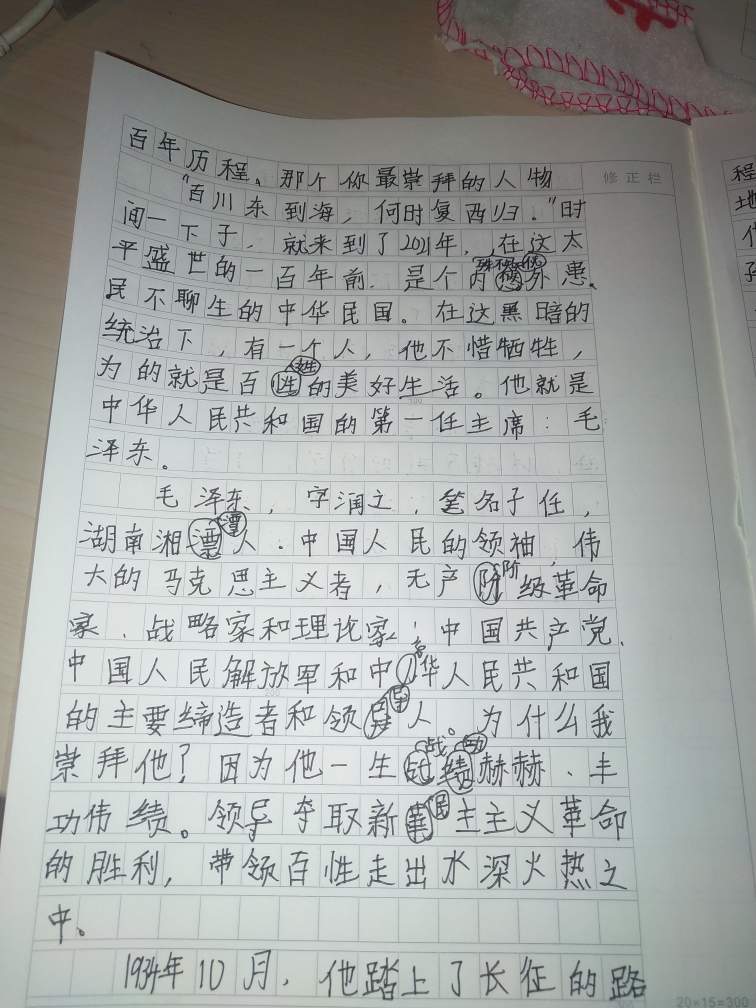 百年历程、那个你最崇拜的人物
修正栏
"百川东到海，何时复西归。"时
间一下子，就来到了2021年，在这太
平盛世的一百年前，是个内忧外患、
民不聊生的中华民国。在这黑暗的
统治下，有一个人，他不惜牺牲，
为的就是百姓的美好生活。他就是
中华人民共和国的第一任主席：毛
泽东。
毛泽东，字润之，笔名子任，
湖南湘潭人．中国人民的领袖，伟
大的马克思主义者，无产阶级革命
家、战略家和理论家，中国共产党、
中国人民解放军和中华人民共和国
的主要缔造者和领导人。为什么我
崇拜他？因为他一生战功赫赫、丰
功伟绩。领导夺取新民主主义革命
的胜利，带领百性走出水深火热之
中、
1934年10月，他踏上了长征的路
20×15=300
程
地